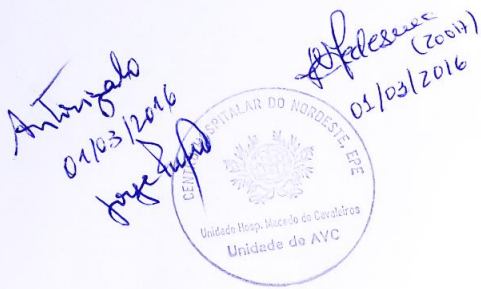 Autorizado
01/03/2016
Jorge
(200A)
01/03/2016
CENTRO HOSPITALAR DO NORDESTE, EPE
Unidade Hosp. Macedo de Cavaleiros
Unidade de AVC